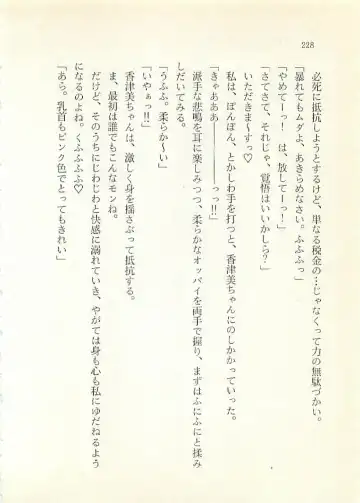 228
必死に抵抗しようとするけど、単なる税金の…じゃなくって力の無駄づかい。
「暴れてもムダよ、あきらめなさい。ふふふっ」
「やめてーっ!　は、放してーっ!」
「さてさて、それじゃ、覚悟はいいかしら?
いただきま〜すっ♡」
私は、ぽんぽん、とかしわ手を打つと、香津美ちゃんにのしかかっていった。
「きゃあああ――――っっ!!」
派手な悲鳴を耳に楽しみつつ、柔らかなオッパイを両手で握り、まずはふにふにと揉み
しだいてみる。
「うふふ。柔らか〜い」
「いやぁっ!!」
香津美ちゃんは、激しく身を揺さぶって抵抗する。
ま、最初は誰でもこんなモンね。
だけど、そのうちにじわじわと快感に溺れていき、やがては身も心も私にゆだねるよう
になるのよね。くふふふふ♡
「あら。乳首もピンク色でとってもきれい」